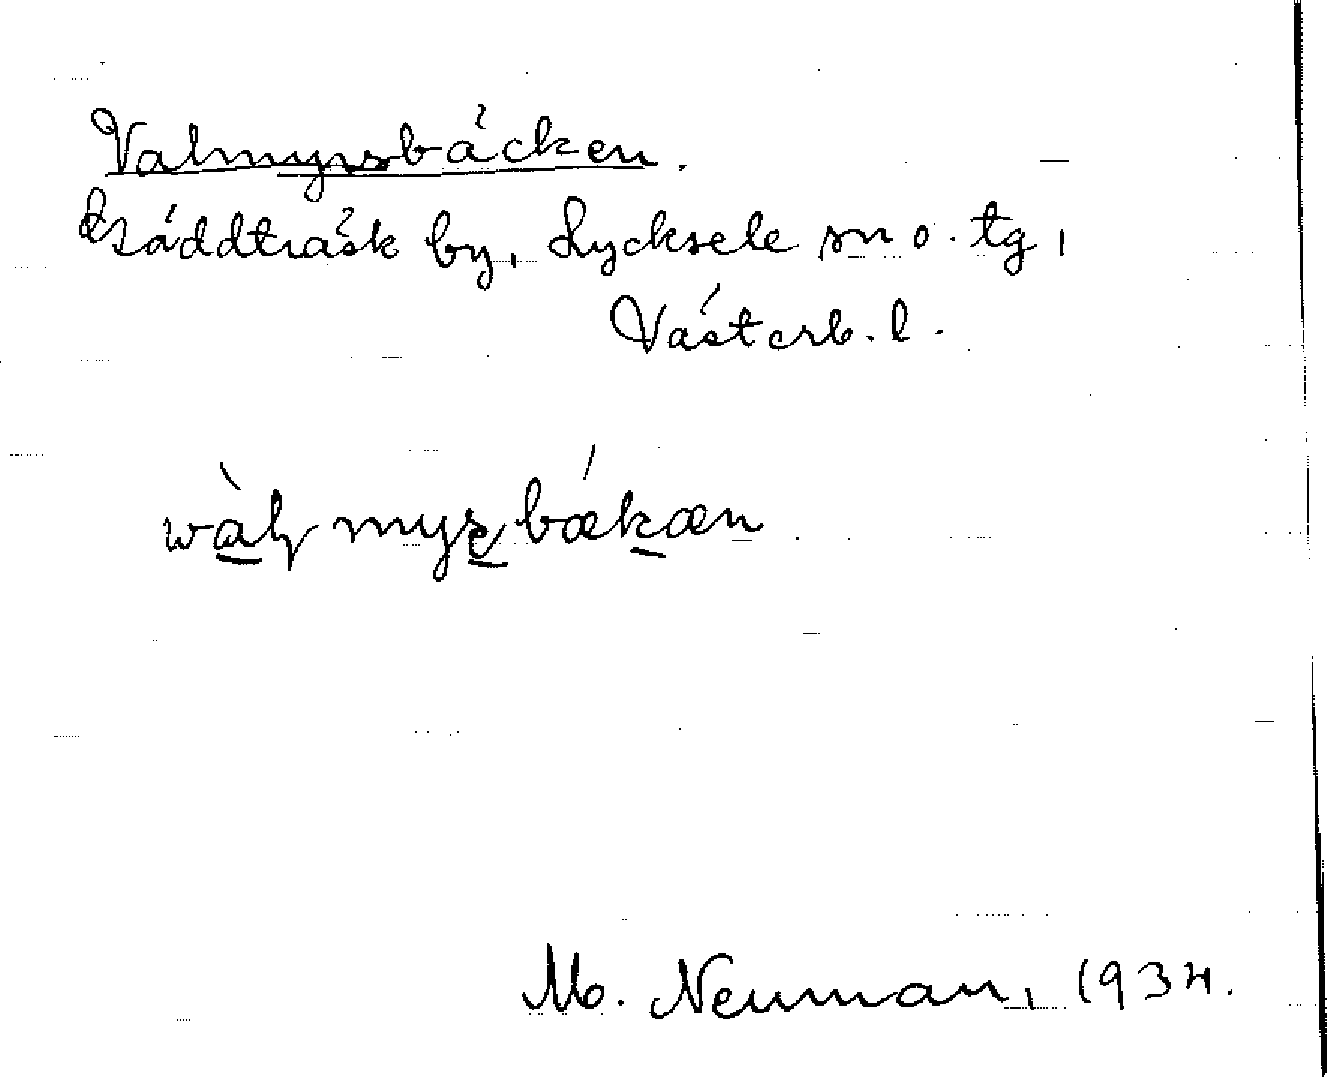 Valmyrsbäcken.
Bräddträsk by, Lycksele sn o. tg,
Västerb. l.
wàl̥ myr̥ bækæn
M. Neuman, 1934.